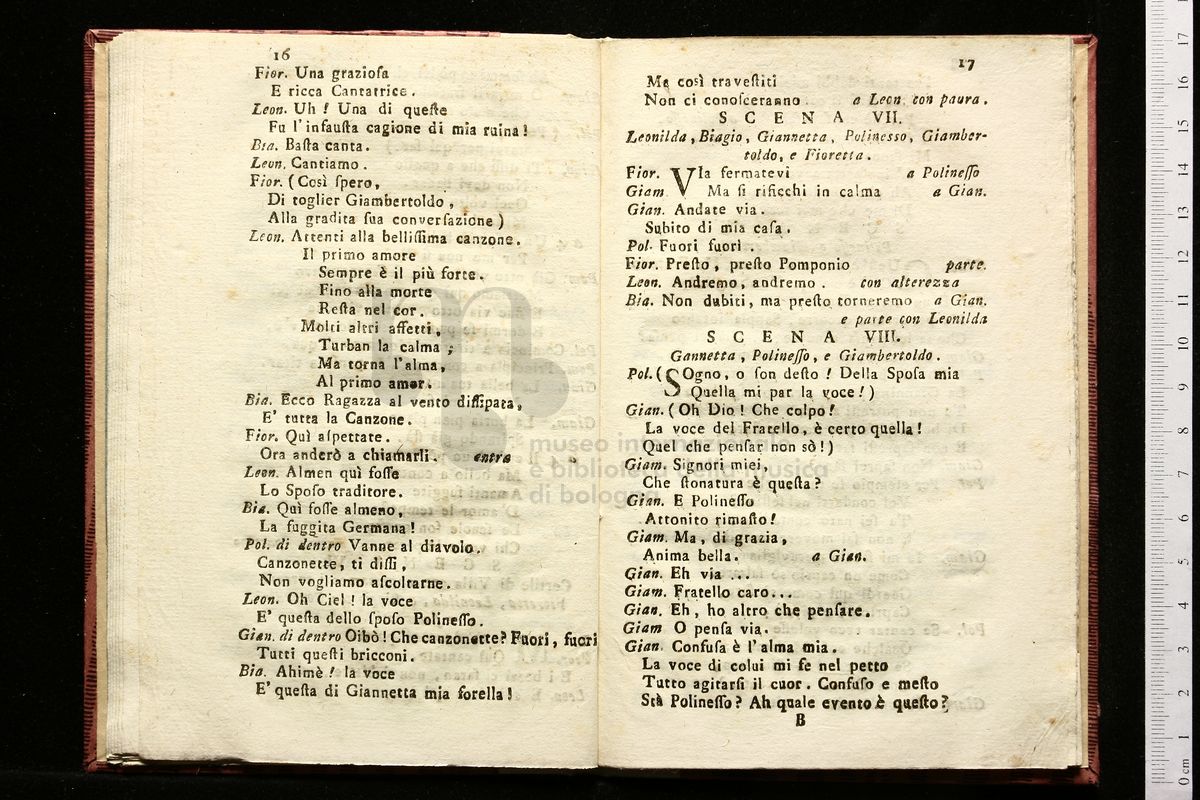 16
Fior. Una grazioſa
E ricca Cantatrice.
Leon. Uh! Una di queſte
Fu l'infauſta cagione di mia ruina!
Bia. Baſta canta.
Leon. Cantiamo.
Fior. (Così ſpero,
Di toglier Giambertoldo,
Alla gradita ſua converſazione)
Leon. Attenti alla belliſſima canzone.
Il primo amore
Sempre è il più forte.
Fino alla morte
Reſta nel cor.
Molti altri affetti,
Turban la calma;
Ma torna l'alma,
Al primo amor.
Bia. Ecco Ragazza al vento diſſipata,
E' tutta la Canzone.
Fior. Quì aſpettate.
Ora anderò a chiamarli. entra
Leon. Almen quì foſſe
Lo Spoſo traditore.
Bia. Quì foſſe almeno,
La fuggita Germana!
Pol. di dentro Vanne al diavolo.
Canzonette, ti diſſi,
Non vogliamo aſcoltarne.
Leon. Oh Ciel! la voce
E' queſta dello ſpoſo Polineſſo.
Gian. di dentro Oibò! Che canzonette? Fuori, fuori
Tutti queſti bricconi.
Bia. Ahimè! la voce
E' queſta di Giannetta mia ſorella!
17
Ma così traveſtiti
Non ci conoſceranno. a Leon. con paura.
SCENA VII.
Leonilda, Biagio, Giannetta, Polineſſo, Giamber-
toldo, e Fioretta.
Fior. VIa fermatevi a Polineſſo
Giam. Ma ſi rificchi in calma a Gian.
Gian. Andate via.
Subito di mia caſa.
Pol. Fuori fuori.
Fior. Preſto, preſto Pomponio parte.
Leon. Andremo, andremo. con alterezza
Bia. Non dubiti, ma preſto torneremo a Gian.
e parte con Leonilda
SCENA VIII.
Gannetta, Polineſſo, e Giambertoldo.
Pol. (SOgno, o ſon deſto! Della Spoſa mia
Quella mi par la voce!)
Gian. (Oh Dio! Che colpo!
La voce del Fratello, è certo quella!
Quel che penſar non sò!)
Giam. Signori miei,
Che ſtonatura è queſta?
Gian. E Polineſſo
Attonito rimaſto!
Giam. Ma, di grazia,
Anima bella. a Gian.
Gian. Eh via ...
Giam. Fratello caro...
Gian. Eh, ho altro che penſare.
Giam O penſa via.
Gian. Confuſa è l'alma mia.
La voce di colui mi fe nel petto
Tutto agitarſi il cuor. Confuſo e meſto
Stà Polineſſo? Ah quale evento è queſto?
B
museo internazionale
e biblioteca della musica
di bologna
0 cm 1 2 3 4 5 6 7 8 9 10 11 12 13 14 15 16 17